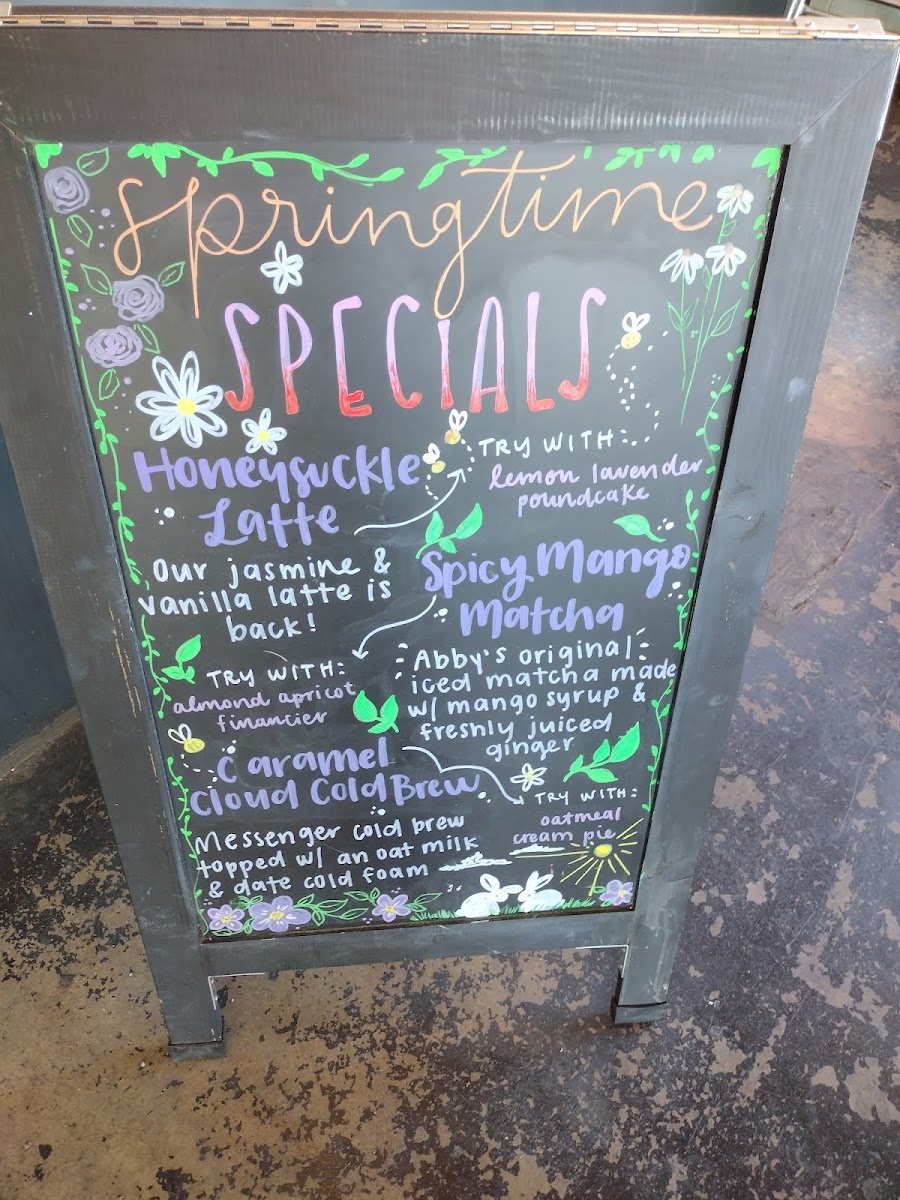 springtime
SPECIALS
Honeysuckle
Latte
TRY WITH:
lemon lavender
poundcake
Our jasmine &
vanilla latte is
back!
Spicy Mango
Matcha
Abby's original
iced matcha made
w/ mango syrup &
freshly juiced
ginger
TRY WITH:
almond apricot
financier
Caramel
Cloud Cold Brew
TRY WITH:
oatmeal
cream pie
Messenger cold brew
topped w/ an oat milk
& date cold foam